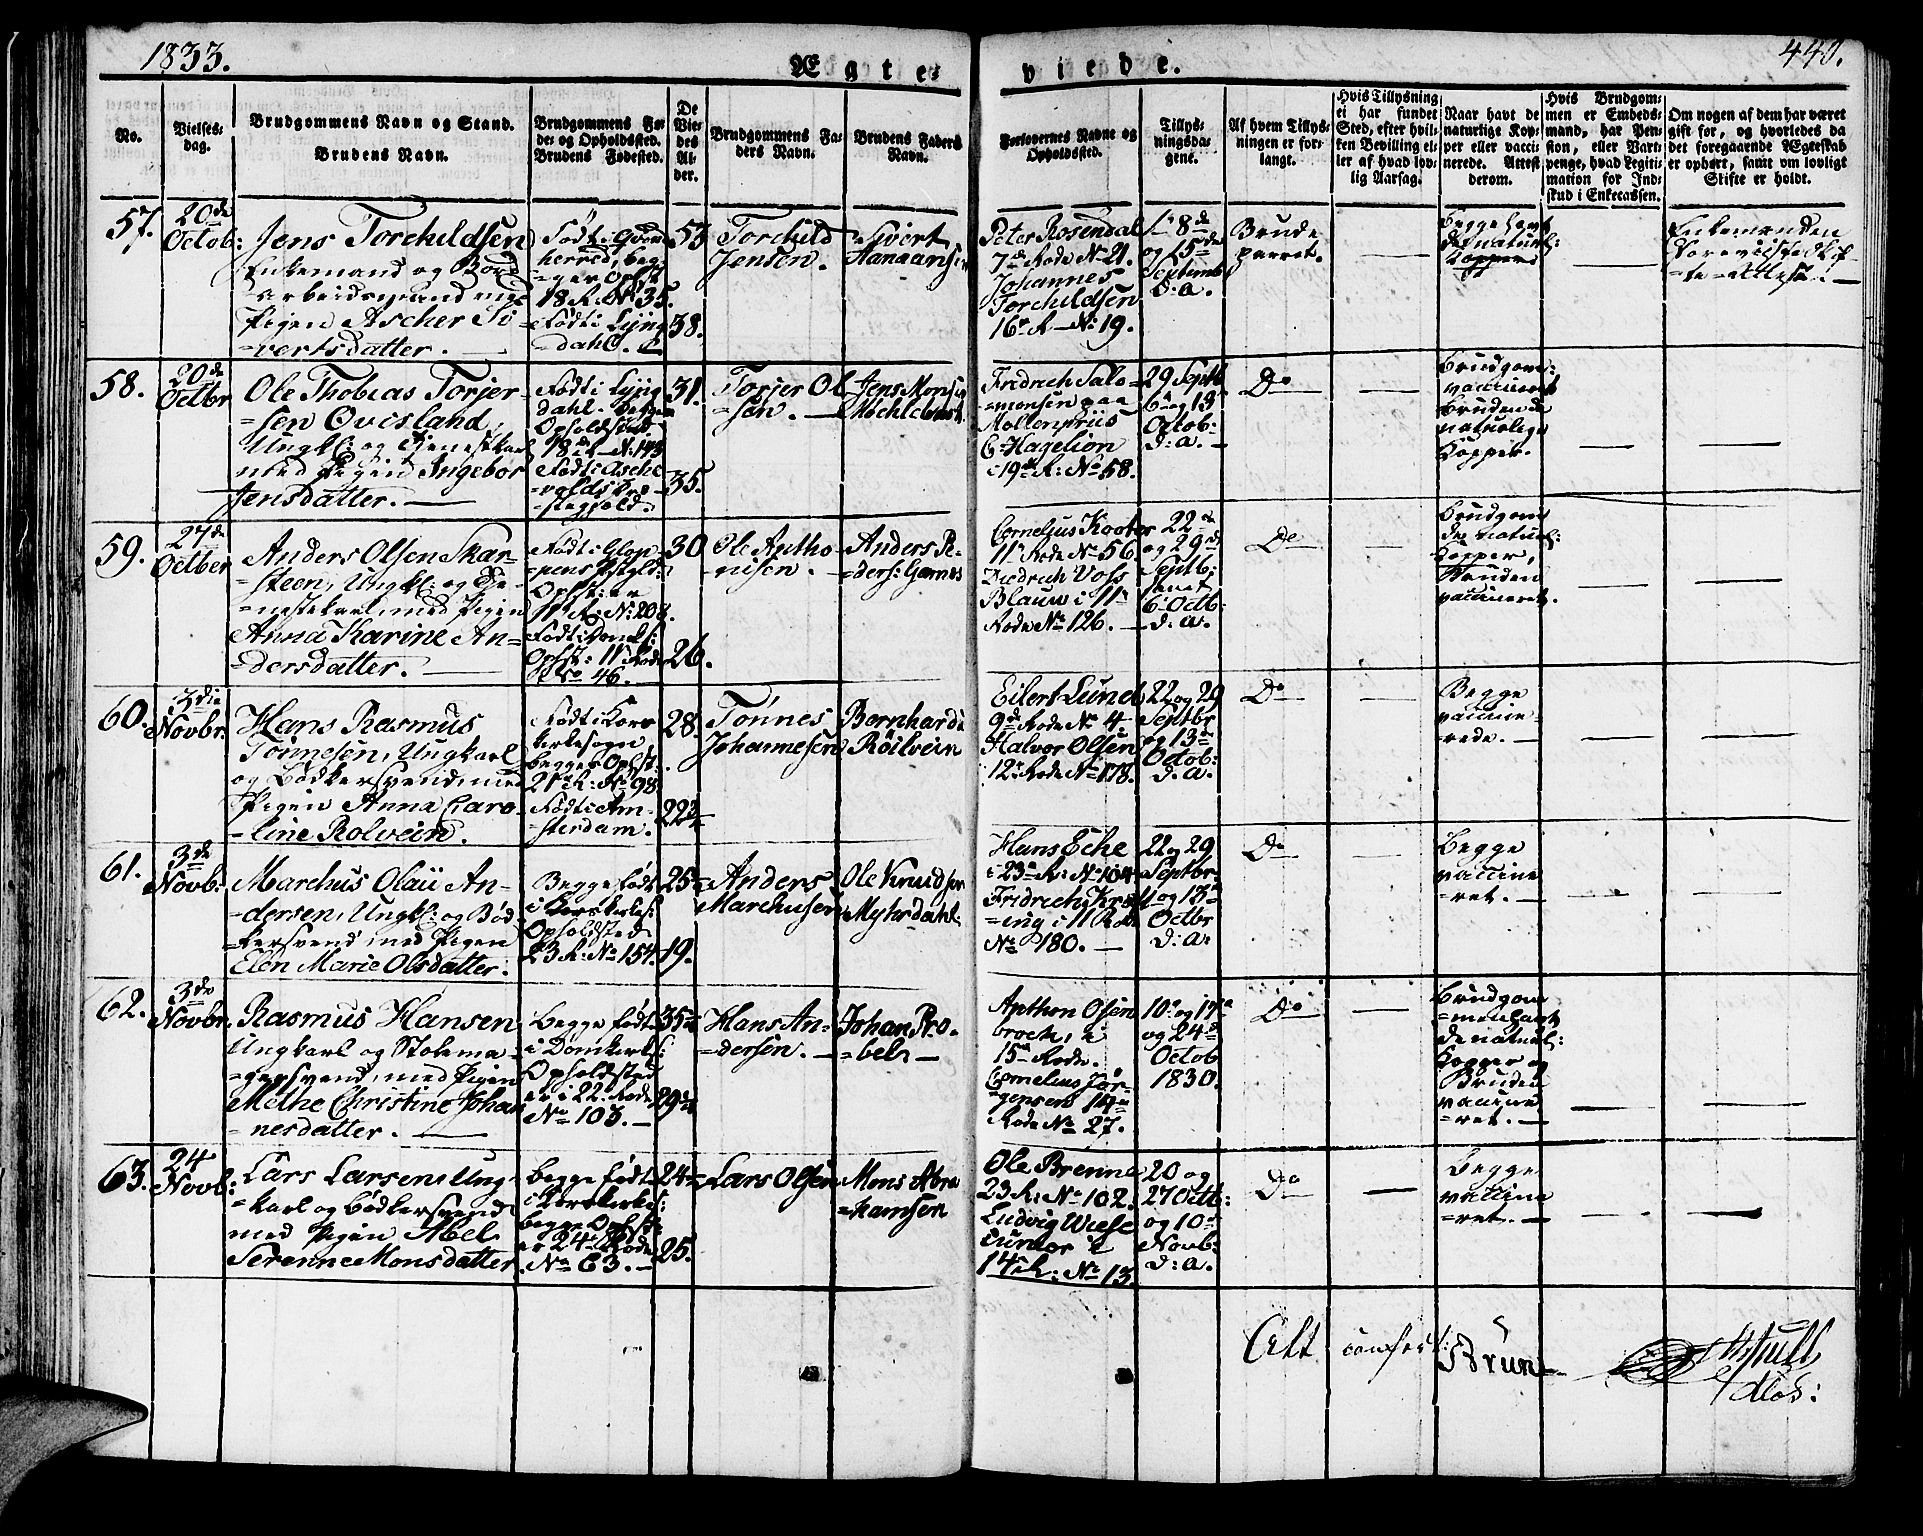 1833.
440.
Ægte-
viede.
No.
Vielses-
dag.
Brudgommens Navn og Stand.
Brudens Navn.
Brudgommens Fø-
de- og Opholdssted.
Brudens Fødested.
De
Vie-
des
Al-
der.
Brudgommens Fa-
ders Navn.
Brudens Faders
Navn.
Forlovernes Navne og
Opholdssted.
Tillys-
ningsda-
gene.
Af hvem Tillys-
ningen er for-
langt.
Hvis Tillysning
ei har fundet
Sted, efter hvil-
ken Bevilling el-
ler af hvad lov-
lig Aarsag.
Naar havt de
naturlige Kop-
per eller vacci-
nerede. Attest
derom.
Hvis Brudgom-
men er Embeds-
mand, har Pen-
sion, eller Vart-
penge, hvad Legiti-
mation for Ind-
skud i Enkecassen.
Om nogen af dem har været
gift før, og hvorledes da
det foregaaende Ægteskab
er ophørt, samt om lovligt
Skifte er holdt.
57.
20de
Octob:
Jens Torchildsen
Enkemand og Bord
arbeidsmand med
Pigen Ascher Si-
=vertsdatter. —
Født i Qvind
herred, beg-
=ges Ophst
18 R: No 35.
Født i Lyng
=dahl.
53
38.
Torchild
Jensen.
Sivert
Hanaansen
Peter Rosendal
7de Rode No 21.
Johannes
Torchildsen
16 R — No 19.
1, 8de
og 15de
Septemb
d: a.
Brude
parret.
Begge havt
de naturl:
Kopper
—
Enkemanden
foreviiste Skif
=te=Attest. —
58.
20de
Octbr
Ole Thobias Torjer-
=sen Qvisland,
Ungk: og Tjenestkarl
med Pigen Ingebor
Jensdatter. —
Født i Lyng
dahl. Begges
Opholdsted
18de R No 143
Født i Asche
=volds Præ-
=stegjeld.
31.
35.
Torjer Ol
=sen. —
Jens Monsen
Fridrich Salo=
=monsen paa
Møllenpriis
C. Hagelion
i 19de R: No 58.
29 Septb
6 og 13
Octob:
d: a. —
Do
—
Brudgom:
vaccineret
Bruden de
naturlige
Kopper.
—
—
59.
27de
Octber
Anders Olsen Skar-
=steen, Ungk: og Tje-
=nestekarl, med Pigen
Anna Karine An-
=dersdatter. —
Født i Glop
pens Pstgld:
Ophst: er
11 R: No 208.
Født i Domk:
Ophst: 11 Rode
No 46. —
30
26.
Ole Antho
=nisen.
Anders Pe-
=ders: Garnes
Cornelius Kooter
11 Rode No 56.
Diedrich Voss
Blauw i 11
Rode No 126. —
22de
og 29de
Septb:
samt
6 Octb:
d: a.
Do
—
Brudgom
de naturl:
Kopper,
Bruden
vaccineret.
—
—
60.
3die
Novbr.
Hans Rasmus
Tønnesen, Ungkarl
og Bødkersvend, med
Pigen Anna Caro
=line Rolvein.
Født i Kors
kirkesogn
begges Ophst
21 R: No 98
Født i Am-
=sterdam.
28.
22
Tønnes
Johannesen
Bernhardi
Röilvein
Eilert Lund
9de Rode No 4.
Halvor Olsen
12 Rode No 178.
22 og 29
Septbr
og 13de
Octob:
d: a.
Do
—
Begge
vaccine=
=rede. —
—
—
61.
3de
Novb:
Marchus Olaii An-
=dersen, Ungk: og Bød-
=kersvend med Pigen
Elen Marie Olsdatter.
Begge født
i Korskirkes:
Opholdsted
23 R: No 154.
25
19.
Anders
Marchusen
Ole Knudsen
Myhrdahl.
Hans Eche
i 23 R: No 104
Fridrich Krø
=ing i 11 Rode
No 180. —
22 og 29
Septbr
og 13
Octbr
d: a:
Do
—
Begge
vaccine
=ret. —
—
—
62.
3de
Novbr.
Rasmus Hansen
Ungkarl og Stolema
=gersvend, med Pigen
Methe Christine Johan
=nesdatter. —
Begge født
i Domkirk:
Opholdsted
er i 22 Rode
No 103. —
35
29
Hans An-
=dersen. —
Johan Pro-
=bel. —
Anthon Osen
broch, i
15 Rode.
Cornelius Jør-
=gensen 14
Rode No 27.
10 og 17
og 24
Octob
1830.
Do
—
Brudgom
=men havt
de naturl:
Kopper og
Bruden
vaccine
=ret. —
—
—
63.
24
Novb:
Lars Larsen Ung-
=karl og bødkersvend
med Pigen Abel
Serenne Monsdatter.
begge født
i Korskirke:
begges Ophst:
er 24 Rode
No 63. —
24
25.
Lars Olsen
Mons Abra
=hamsen
Ole Brenne
23 R: No 102.
Ludvig Wiese
Junior i
14 R: No 13
20 og
27 Octb:
og 10
Novb:
d: a.
Do
—
Begge
vaccine
=ret. —
—
—
Alt confert:
Brun